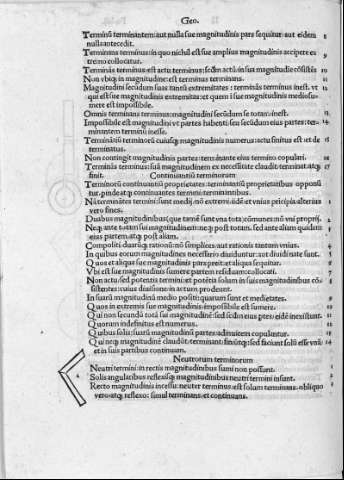 Geo.
Terminũ terminantem: aut nulla suę magnitudinis pars sequitur: aut eidem 8
nulla antecedit.
Terminans terminus: in quo nichil est suę amplius magnitudinis accipere ex 9
tremo collocatur.
Terminãs terminus: est actu terminus: scđm actũ in sua magnitudie cõsistẽs 10
Non vbiq; in magnitudine: est terminus terminans. 11
Magnitudini secũdum suas tantũ extremitates: terminãs terminus inest. vt 12
qui est suę magnitudinis extremitas: et quem i suę magnitudinis medio
mere est impossibile.
Omnis terminans terminus: magnitudini secũdum se totar: inest. 13
Impossibile est magnitudini vt partes habenti seu secũdum eius partes: ter- 14
minantem terminũ inesse.
Terminãtiũ terminorũ cuiusq; magnitudis numerus: actu finitus est: et de 15
terminatus.
Non contingit magnitudinis partes: terminante eius termino copulari. 16
Terminãs terminus: suã magnitudinem ex necessitate claudit: terminat atq; 17
finit.
Continuantiũ terminorum
Terminorũ continuantiũ proprietates: terminantiũ proprietatibus opponũ
tur. pinde atq; continuantes termini: terminantibus.
vero fines.
Duabus magnitudinibus: que tamẽ sunt vna tota: cõmunes: nõ vni proprij. 2
Neq; ante totam sui magnitudinem: neq; post totam. sed ante alium quidam 3
eius partem. atq; post aliam.
Compositi duarũq; rationũ: nõ simplices: aut rationis tantum vnius. 4
In quibus eorum magnitudines necessario diuiduntur: aut diuidi nate sunt. 5
Quos et aliqua suę magnitudinis pars preit: et aliqua sequitur. 6
Vbi est suę magnitudinis sumere partem residuam: collocati. 7
Non actu: sed potentis termini: et potẽtia solum in suis magnitudinibus cõ 8
sistentes: cuius diuisione in actum prodeunt.
In suarũ magnitudinũ medio positi: quarum sunt et medietates. 9
Quos in extremis suę magnitudinis: impossibile est sumere. 10
Qui non secundũ totã sui magnitudinẽ: sed scđm eius ptes: eidẽ inexistunt. 11
Quorum indefinitus est numerus. 12
Quibus solis: suarũ magnitudinũ partes: adinuicem copulantur. 13
Qui neq; magnitudinẽ claudũt. terminant: finiũtq;: sed faciunt solũ esse vnã 14
et in suis partibus continuam.
Neutrorum terminorum
Neutri termini: in rectis magnitudinibus sumi non possunt. 1
Solis angularibus reflexisq; magnitudinibus neutri termini insunt. 2
Recto magnitudinis incessu: neuter terminus: est solum terminans. obliquo 3
vero: atq; reflexo: simul terminans: et continuans.